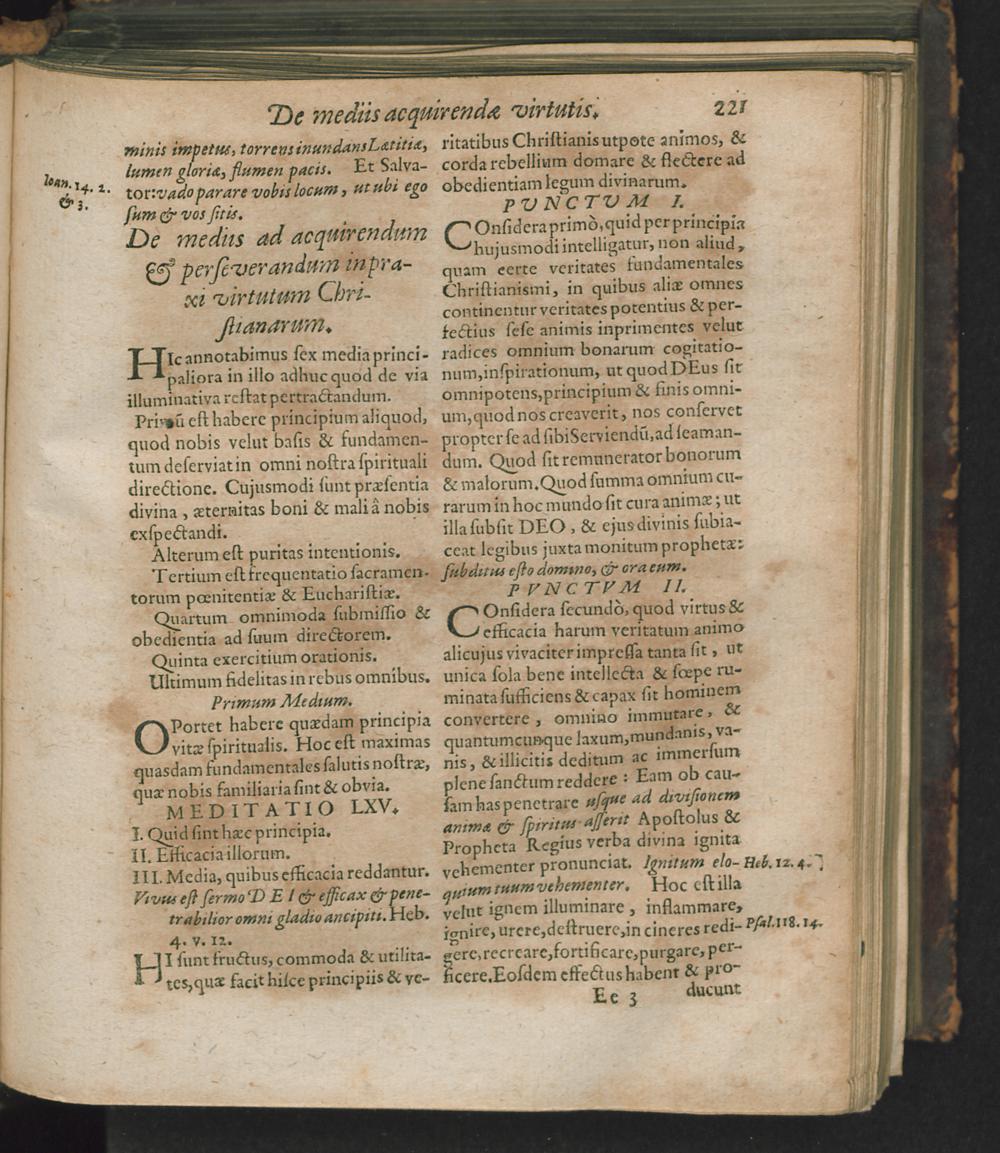 De mediis acquirendæ virtutis. 221
minis impetus, torrens inundans Lætitiæ,
lumen gloriæ, flumen pacis. Et Salva-
Ioan. 14. 2.
& 3.
tor: vado parare vobis locum, ut ubi ego
sum & vos sitis.
De mediis ad acquirendum
& perseverandum in pra-
xi virtutum Chri-
stianarum.
HIc annotabimus sex media princi-
paliora in illo adhuc quod de via
illuminativa restat pertractandum.
Primũ est habere principium aliquod,
quod nobis velut basis & fundamen-
tum deserviat in omni nostra spirituali
directione. Cujusmodi sunt præsentia
divina, æternitas boni & mali â nobis
exspectandi.
Alterum est puritas intentionis.
Tertium est frequentatio sacramen-
torum pœnitentiæ & Eucharistiæ.
Quartum omnimoda submissio &
obedientia ad suum directorem.
Quinta exercitium orationis.
Ultimum fidelitas in rebus omnibus.
Primum Medium.
OPortet habere quædam principia
vitæ spiritualis. Hoc est maximas
quasdam fundamentales salutis nostræ,
quæ nobis familiaria sint & obvia.
MEDITATIO LXV.
I. Quid sint hæc principia.
II. Efficacia illorum.
III. Media, quibus efficacia reddantur.
Vivus est sermo DEI & efficax & pene-
trabilior omni gladio ancipiti. Heb.
4. v. 12.
HI sunt fructus, commoda & utilita-
tes, quæ facit hisce principiis & ve-
ritatibus Christianis utpote animos, &
corda rebellium domare & flectere ad
obedientiam legum divinarum.
PUNCTUM I.
COnsidera primò, quid per principia
hujusmodi intelligatur, non aliud,
quam certe veritates fundamentales
Christianismi, in quibus aliæ omnes
continentur veritates potentius & per-
fectius sese animis inprimentes velut
radices omnium bonarum cogitatio-
num, inspirationum, ut quod DEus sit
omnipotens, principium & finis omni-
um, quod nos creaverit, nos conservet
propter se ad sibi Serviendũ, ad se aman-
dum. Quod sit remunerator bonorum
& malorum. Quod summa omnium cu-
rarum in hoc mundo sit cura animæ; ut
illa subsit DEO, & ejus divinis subia-
ceat legibus juxta monitum prophetæ:
subditus esto domino, & ora eum.
PVNCTVM II.
COnsidera secundò, quod virtus &
efficacia harum veritatum animo
alicujus vivaciter impressa tanta sit, ut
unica sola bene intellecta & sœpe ru-
minata sufficiens & capax sit hominem
convertere, omnino immutare, &
quantumcunque laxum, mundanis, va-
nis, & illicitis deditum ac immersum
plene sanctum reddere: Eam ob cau-
sam has penetrare usque ad divisionem
animæ & spiritus asserit Apostolus &
Propheta Regius verba divina ignita
vehementer pronunciat. Ignitum elo-
Heb. 12. 4.
quium tuum vehementer. Hoc est illa
velut ignem illuminare, inflammare,
ignire, urere, destruere, in cineres redi-
Psal. 118. 14.
gere, recreare, fortificare, purgare, per-
ficere. Eosdem effectus habent & pro-
Ee 3 ducunt